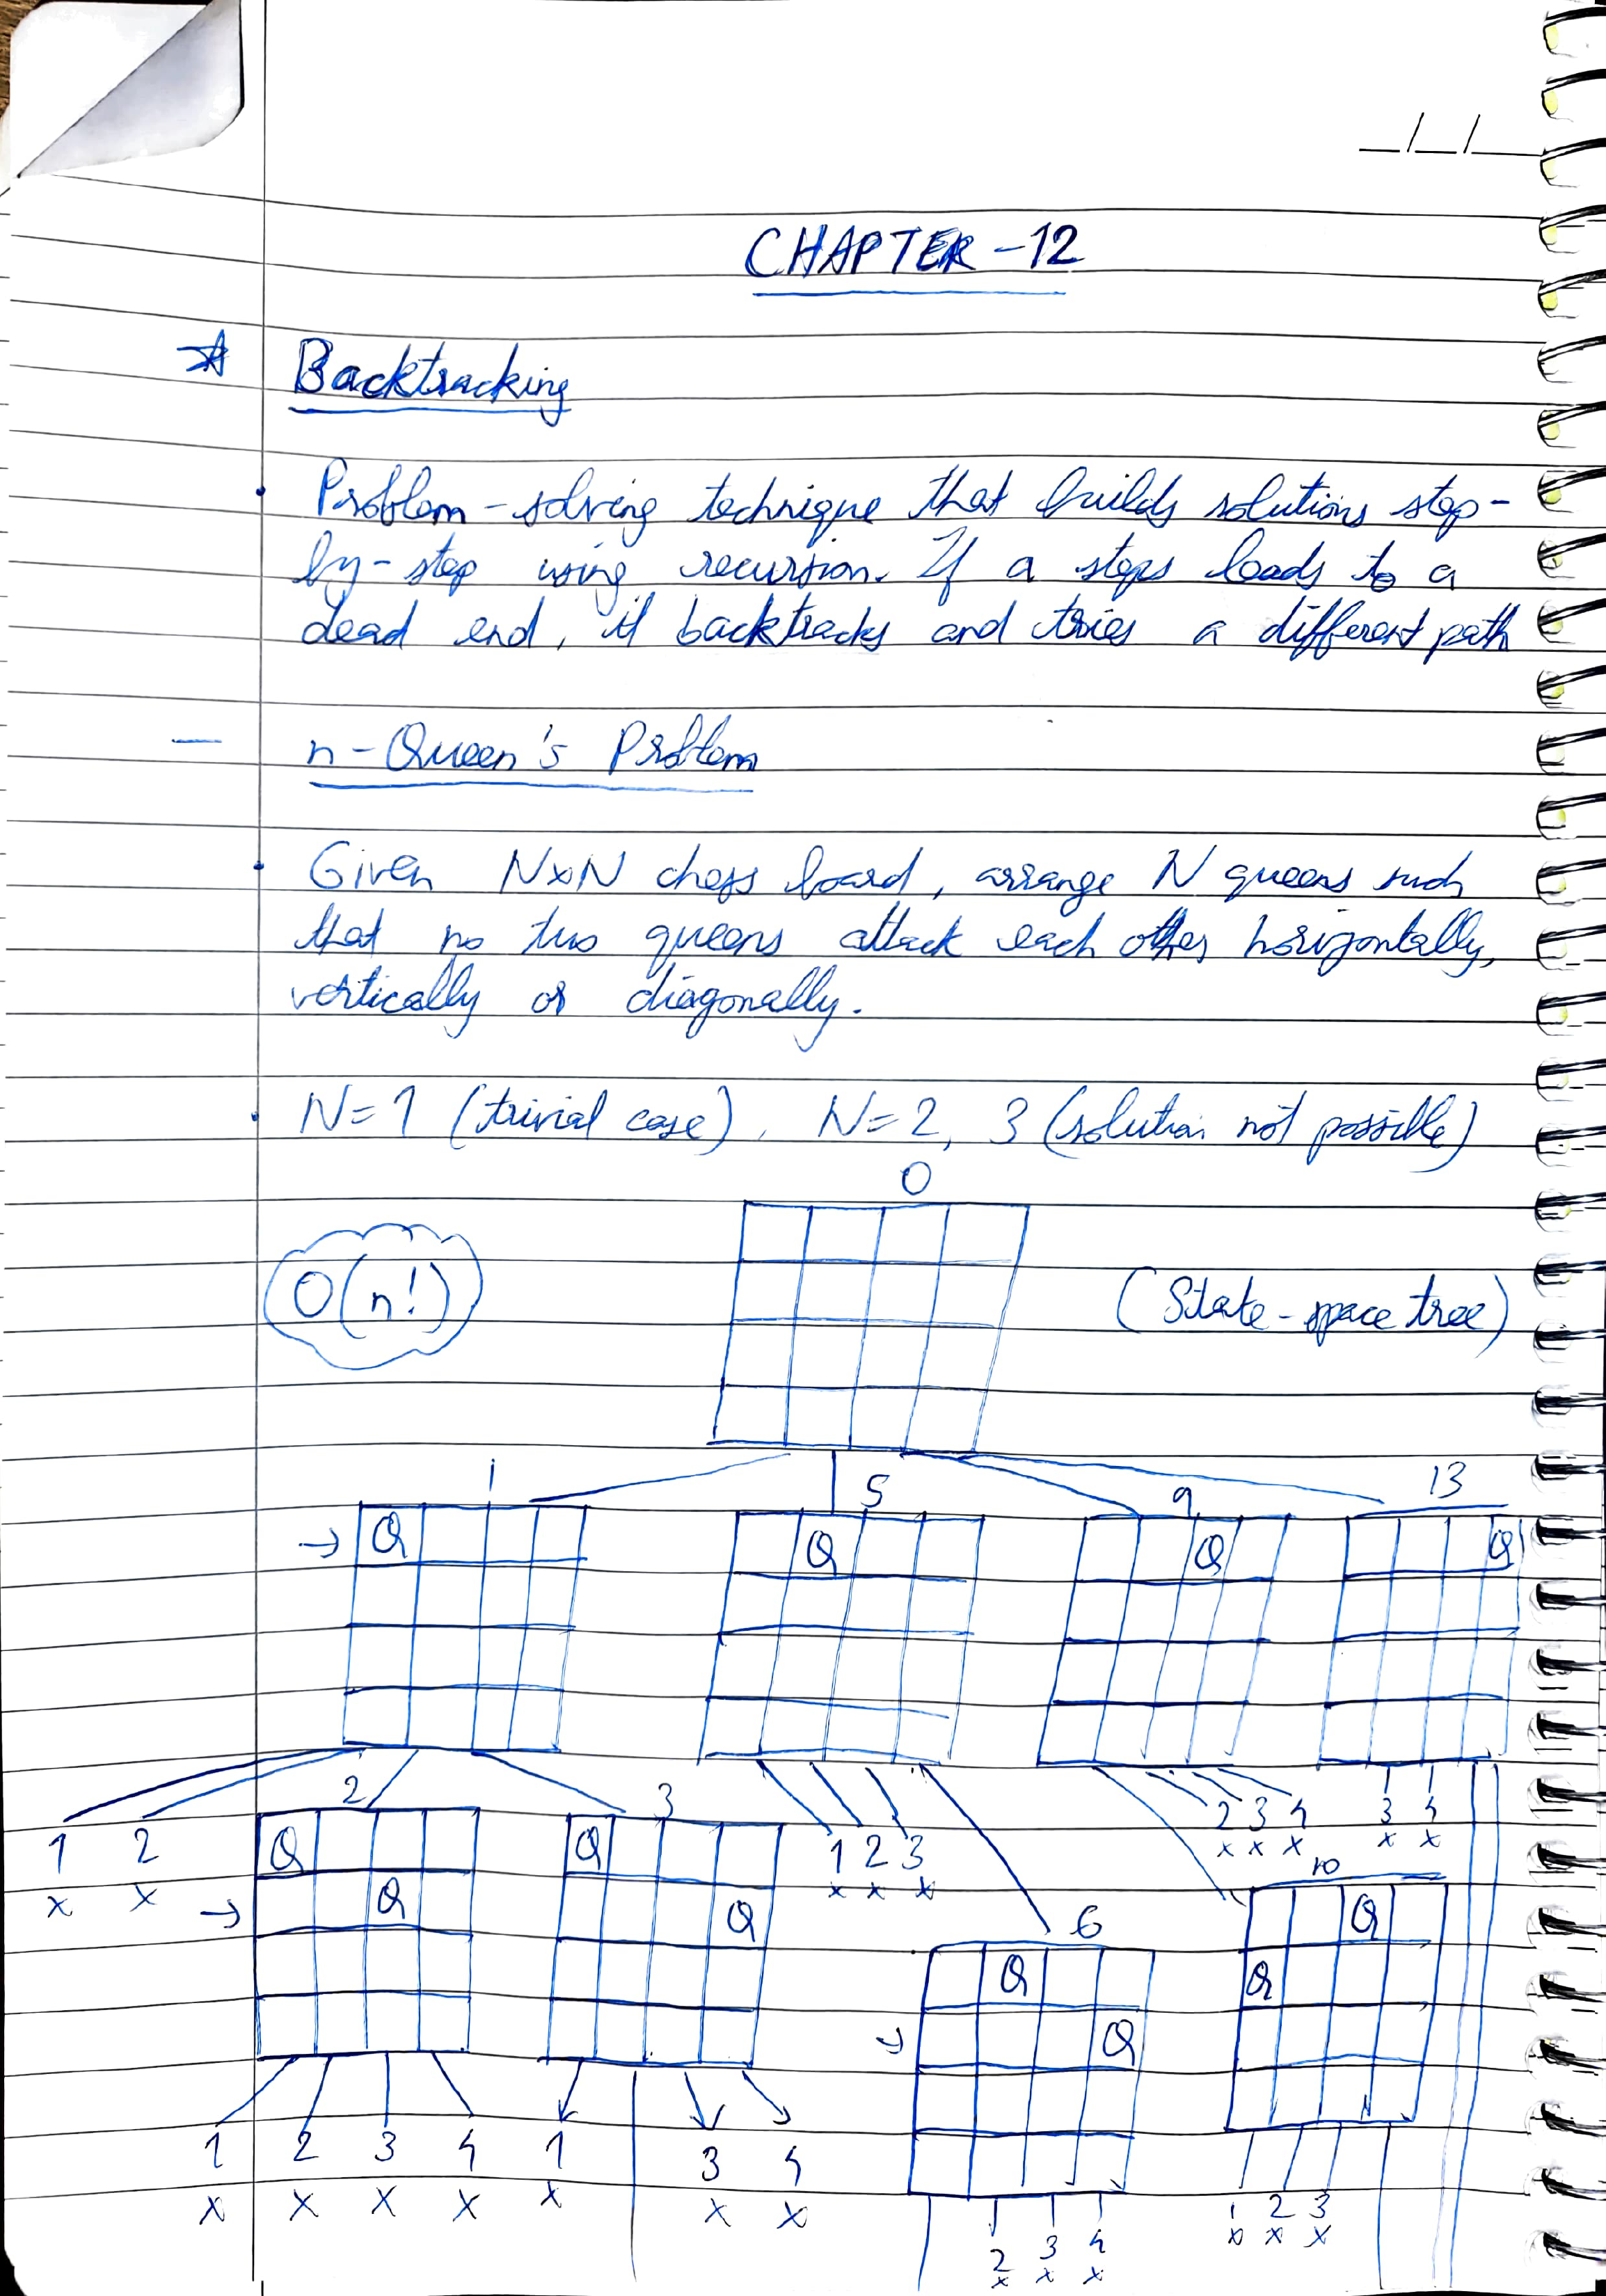 _/_/_
CHAPTER - 12
Backtracking
• Problem - solving technique that builds solutions step-
by - step using recursion. If a steps leads to a
dead end, it backtracks and tries a different path
— n - Queen's Problem
• Given NxN chess board, arrange N queens such
that no two queens attack each other horizontally,
vertically or diagonally.
• N = 1 (trivial case), N = 2, 3 (solution not possible)
0
O(n!)
(State - space tree)
1 5 9 13
→ Q Q Q Q
2 3
1 2 1 2 3 2 3 4 3 4
x x x x x x x x x x
Q Q
→ Q Q
10
Q
Q
6
Q
→ Q
1 2 3 4 1 3 4
x x x x x x x
2 3 4 1 2 3
x x x x x x